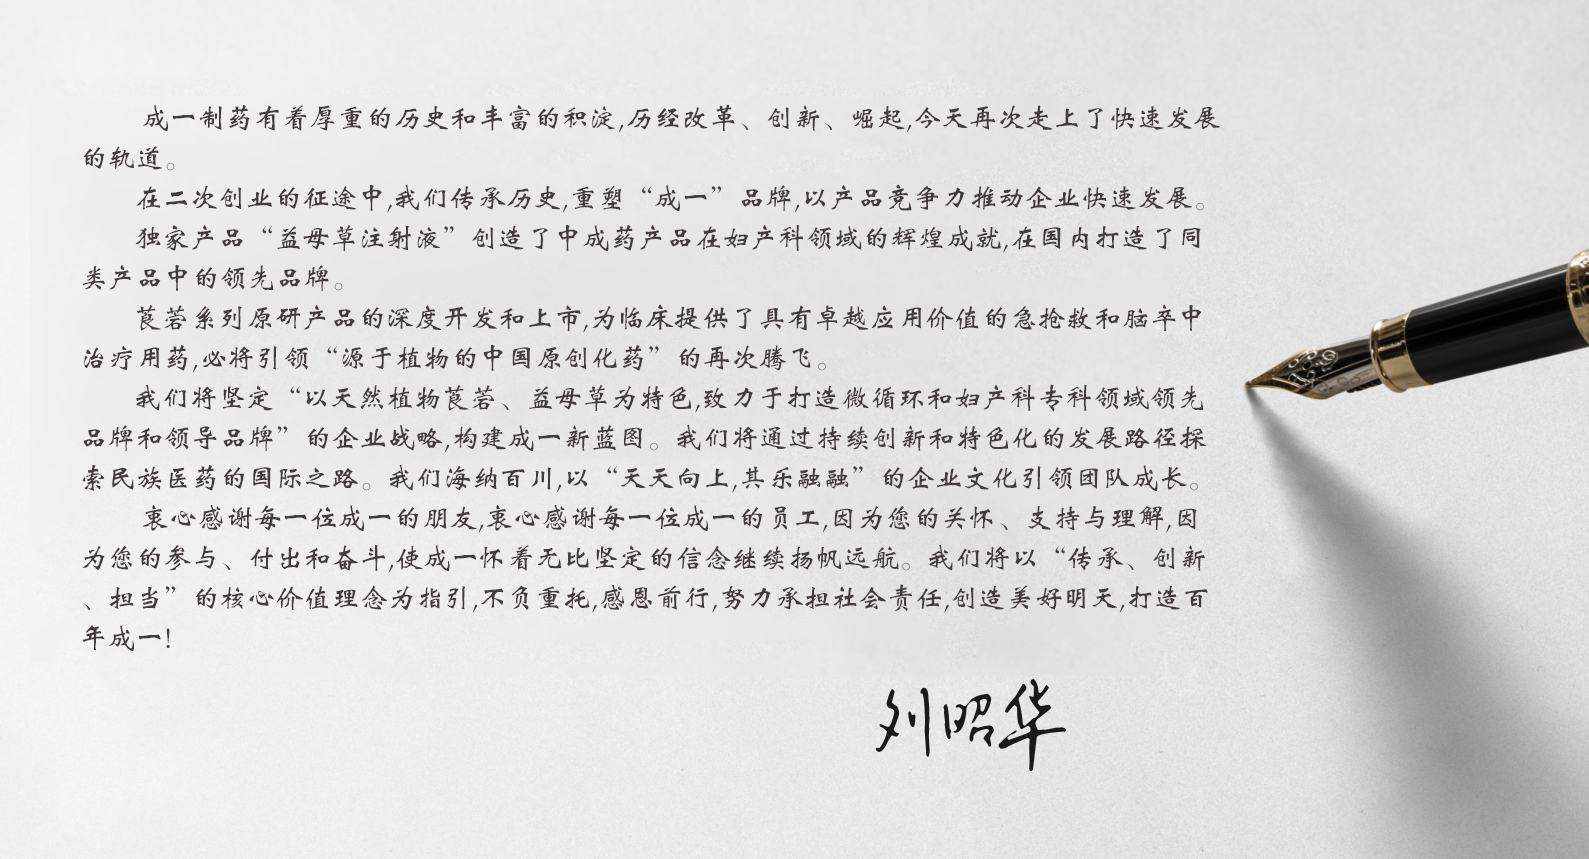 成一制药有着厚重的历史和丰富的积淀,历经改革、创新、崛起,今天再次走上了快速发展
的轨道。
在二次创业的征途中,我们传承历史,重塑“成一”品牌,以产品竞争力推动企业快速发展。
独家产品“益母草注射液”创造了中成药产品在妇产科领域的辉煌成就,在国内打造了同
类产品中的领先品牌。
莨菪系列原研产品的深度开发和上市,为临床提供了具有卓越应用价值的急抢救和脑卒中
治疗用药,必将引领“源于植物的中国原创化药”的再次腾飞。
我们将坚定“以天然植物莨菪、益母草为特色,致力于打造微循环和妇产科专科领域领先
品牌和领导品牌”的企业战略,构建成一新蓝图。我们将通过持续创新和特色化的发展路径探
索民族医药的国际之路。我们海纳百川,以“天天向上,其乐融融”的企业文化引领团队成长。
衷心感谢每一位成一的朋友,衷心感谢每一位成一的员工,因为您的关怀、支持与理解,因
为您的参与、付出和奋斗,使成一怀着无比坚定的信念继续扬帆远航。我们将以“传承、创新
、担当”的核心价值理念为指引,不负重托,感恩前行,努力承担社会责任,创造美好明天,打造百
年成一!
刘昭华